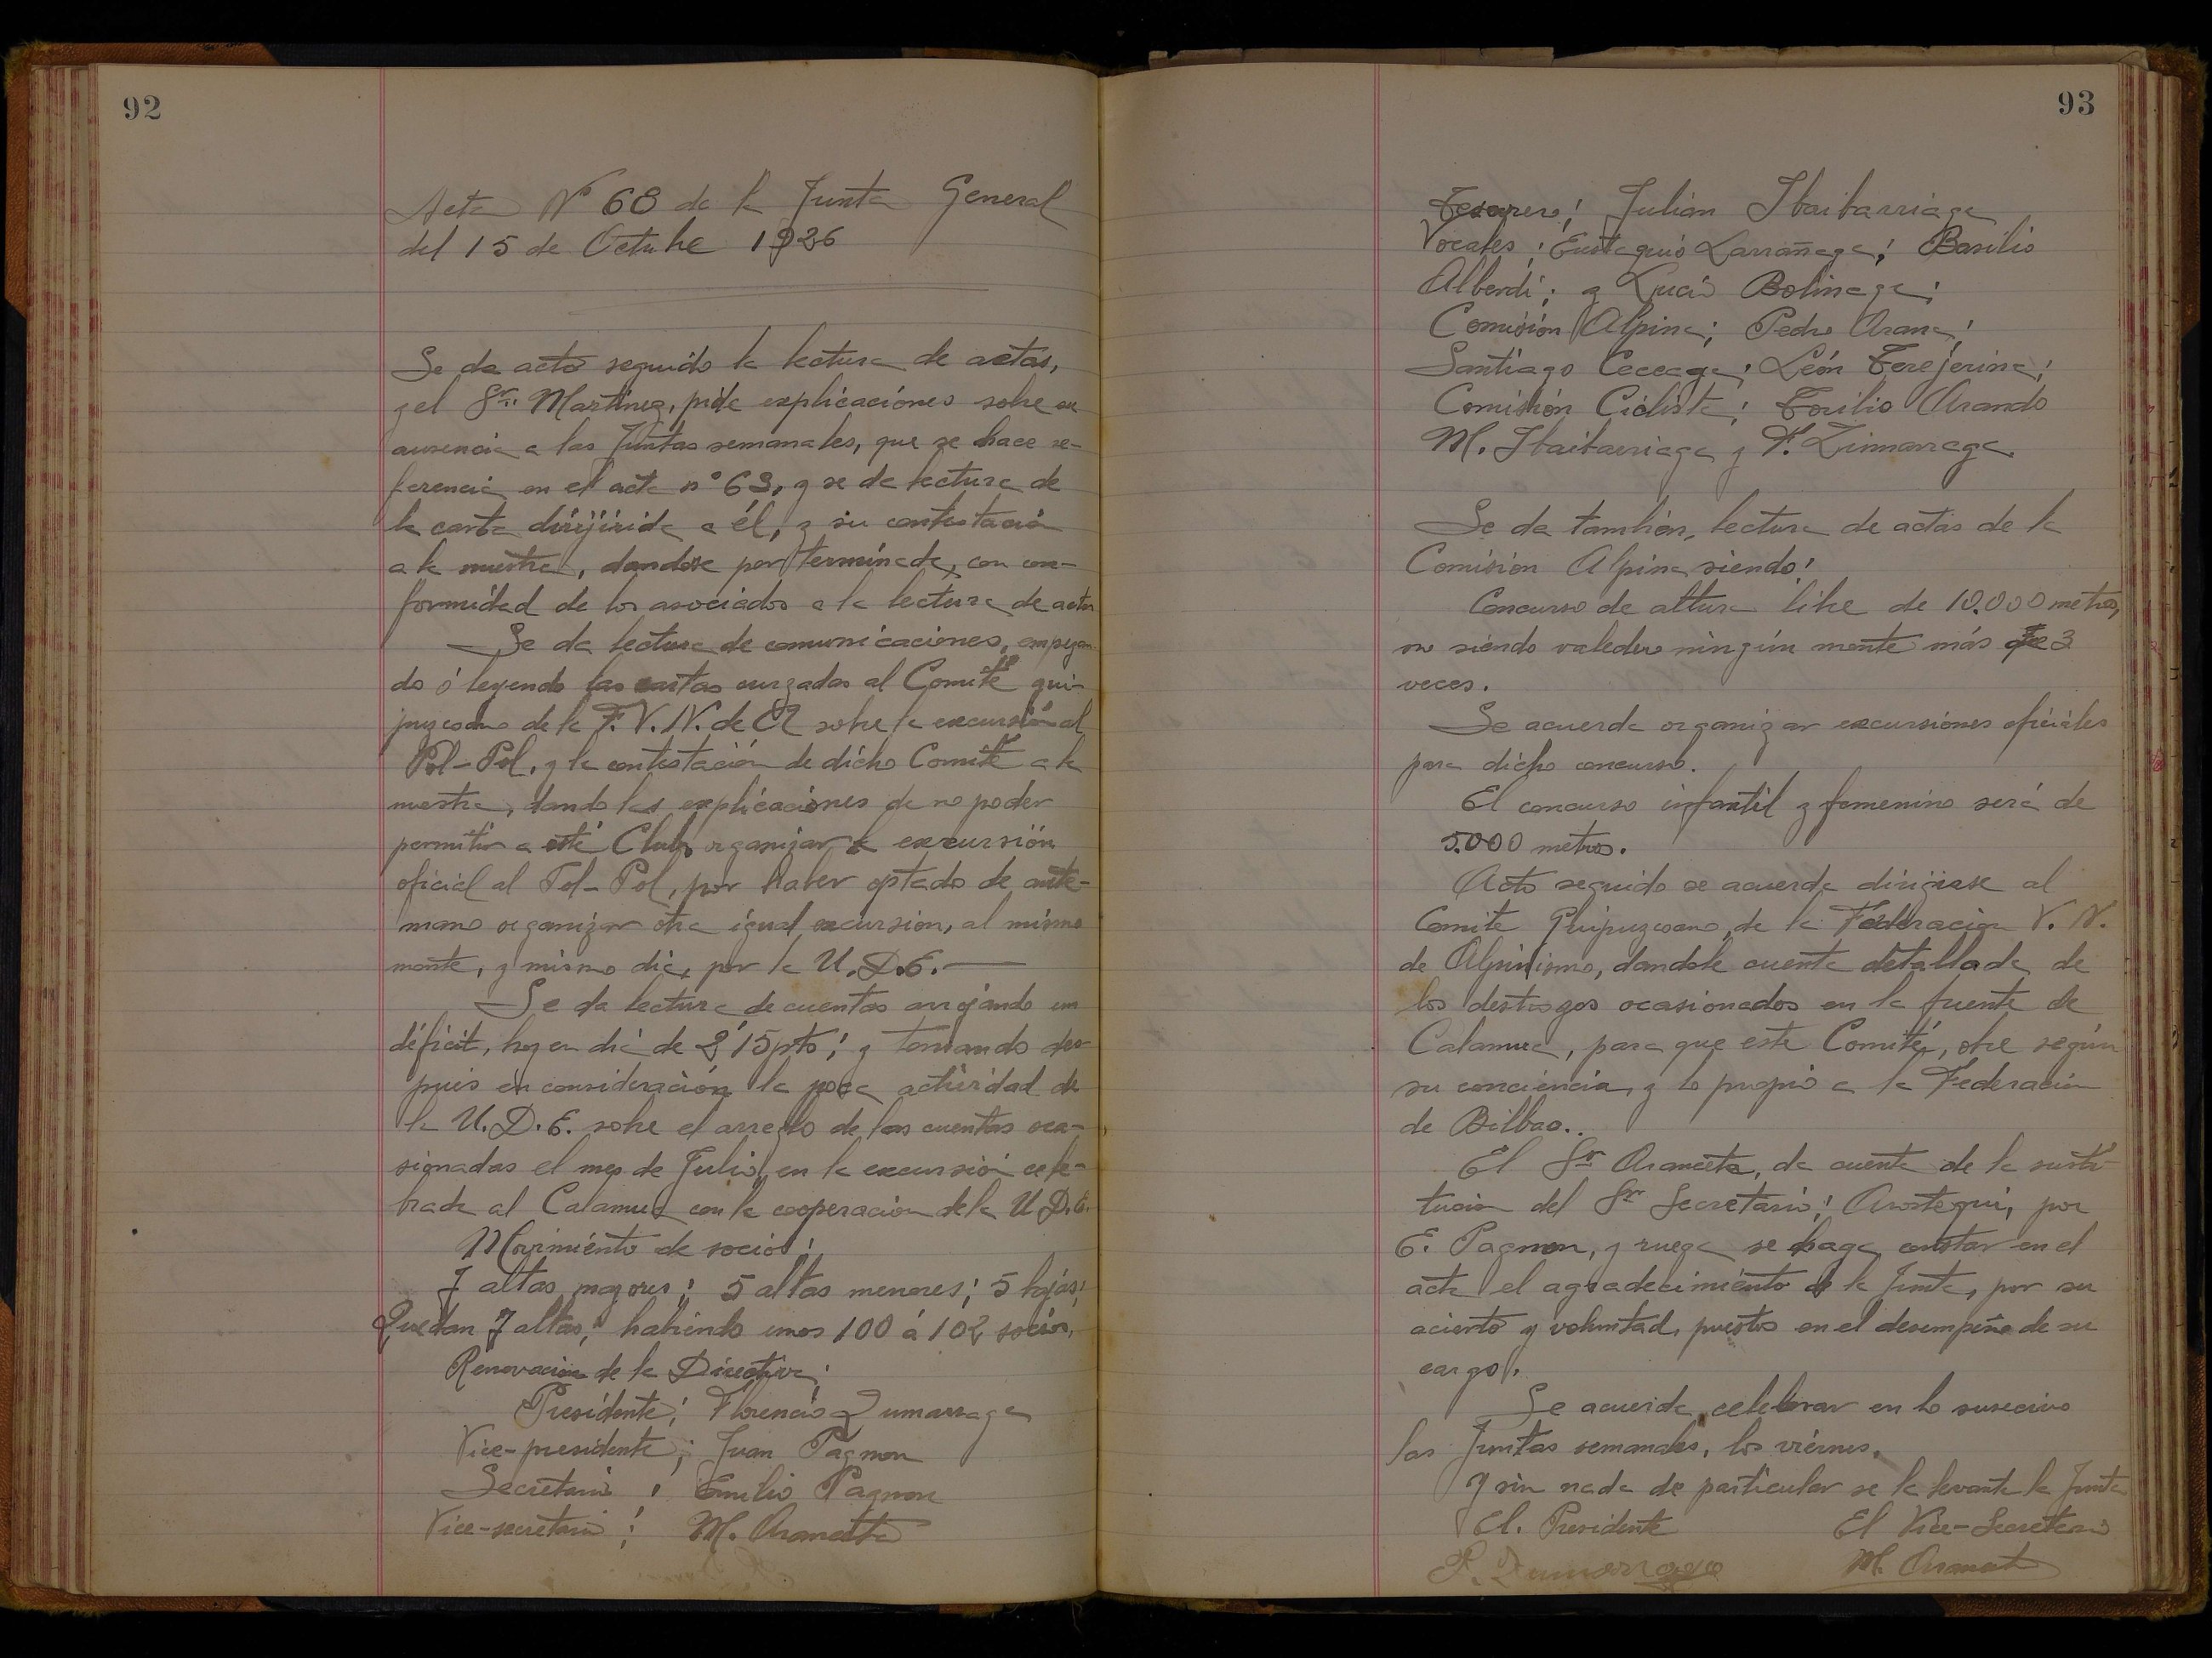 92
Acta Nº 68 de la Junta General
del 15 de Octubre 1926
Se da acto seguido la lectura de actas,
y el Sr. Martinez, pide explicaciónes sobre su
ausencia a las Juntas semanales, que se hace re-
ferencia en el acta nº 63, y se da lectura de
la carta dirijirida a él, y su contestación
a la nuestra, dandose por terminada, con con-
formidad de los asociados a la lectura de actas
Se da lectura de comunicaciones, empezan-
do ó leyendo las cartas curzadas al Comité gui-
puzcoano de la F.V.N. de A sobre la excursión al
Pol-Pol, y la contestación de dicho Comité a la
nuestra, dando las explicaciones de no poder
permitir a esté Club organizar la excursión
oficial al Pol-Pol, por haber optado de ante-
mano organizar otra igual excursion, al mismo
monte, y mismo dia, por la U.D.E.—
Se da lectura de cuentas arrojando un
déficit, hoy en dia de 2'15 pts; y tomando des-
pues en consideración la poca actividad de
la U.D.E. sobre el arreglo de las cuentas oca-
sionadas el mes de Julio, en la excursión cele-
brada al Calamua con la cooperación de la U.D.E.
Movimiento de socios:
7 altas mayores; 5 altas menores; 5 bajas;
Quedan 7 altas; habiendo unos 100 á 102 socios,
Renovación de la Directiva:
Presidente; Florencio Zumarraga
Vice-presidente; Juan Pagnon
Secretario; Emilio Pagnon
Vice-secretario; M. Aranceta
93
Tesorero; Julian Ibaibarriaga
Vocales; Eustaquio Larrañaga; Basilio
Alberdi; y Lucio Bolinaga;
Comisión Alpina; Pedro Arana;
Santiago Ceceaga; León Terejerina;
Comisión Ciclista; Torilio Arando
M. Ibaibarriaga y F. Zumarraga.
Se da tambien, lectura de actas de la
Comision Alpina siendo;
Concurso de altura libre de 10.000 metros,
no siendo valedero ningún monte más de 3
veces.
Se acuerda organizar excursiónes oficiales
para dicho concurso.
El concurso infantil y femenino será de
5.000 metros.
Acto seguido se acuerda dirigirse al
Comite Guipuzcoano, de la Federacion V.N.
de Alpinismo, dandole cuenta detallada de
los destrozos ocasionados en la fuente de
Calamua, para que este Comité, obre según
su conciencia, y lo propio a la Federación
de Bilbao..
El Sr Aranceta, da cuenta de la susti-
tucion del Sr Secretario; Arostegui, por
E. Pagnon, y ruega se haga constar en el
acta el agradecimiento de la Junta, por su
acierto y voluntad, puestos en el desempeño de su
cargo.
Se acuerda celebrar en lo sucecivo
las Juntas semanales, los viérnes.
Y sin nada de particular se la levanta la Junta
El. Presidente El Vice-Secretario
F. Zumarraga M. Aranceta